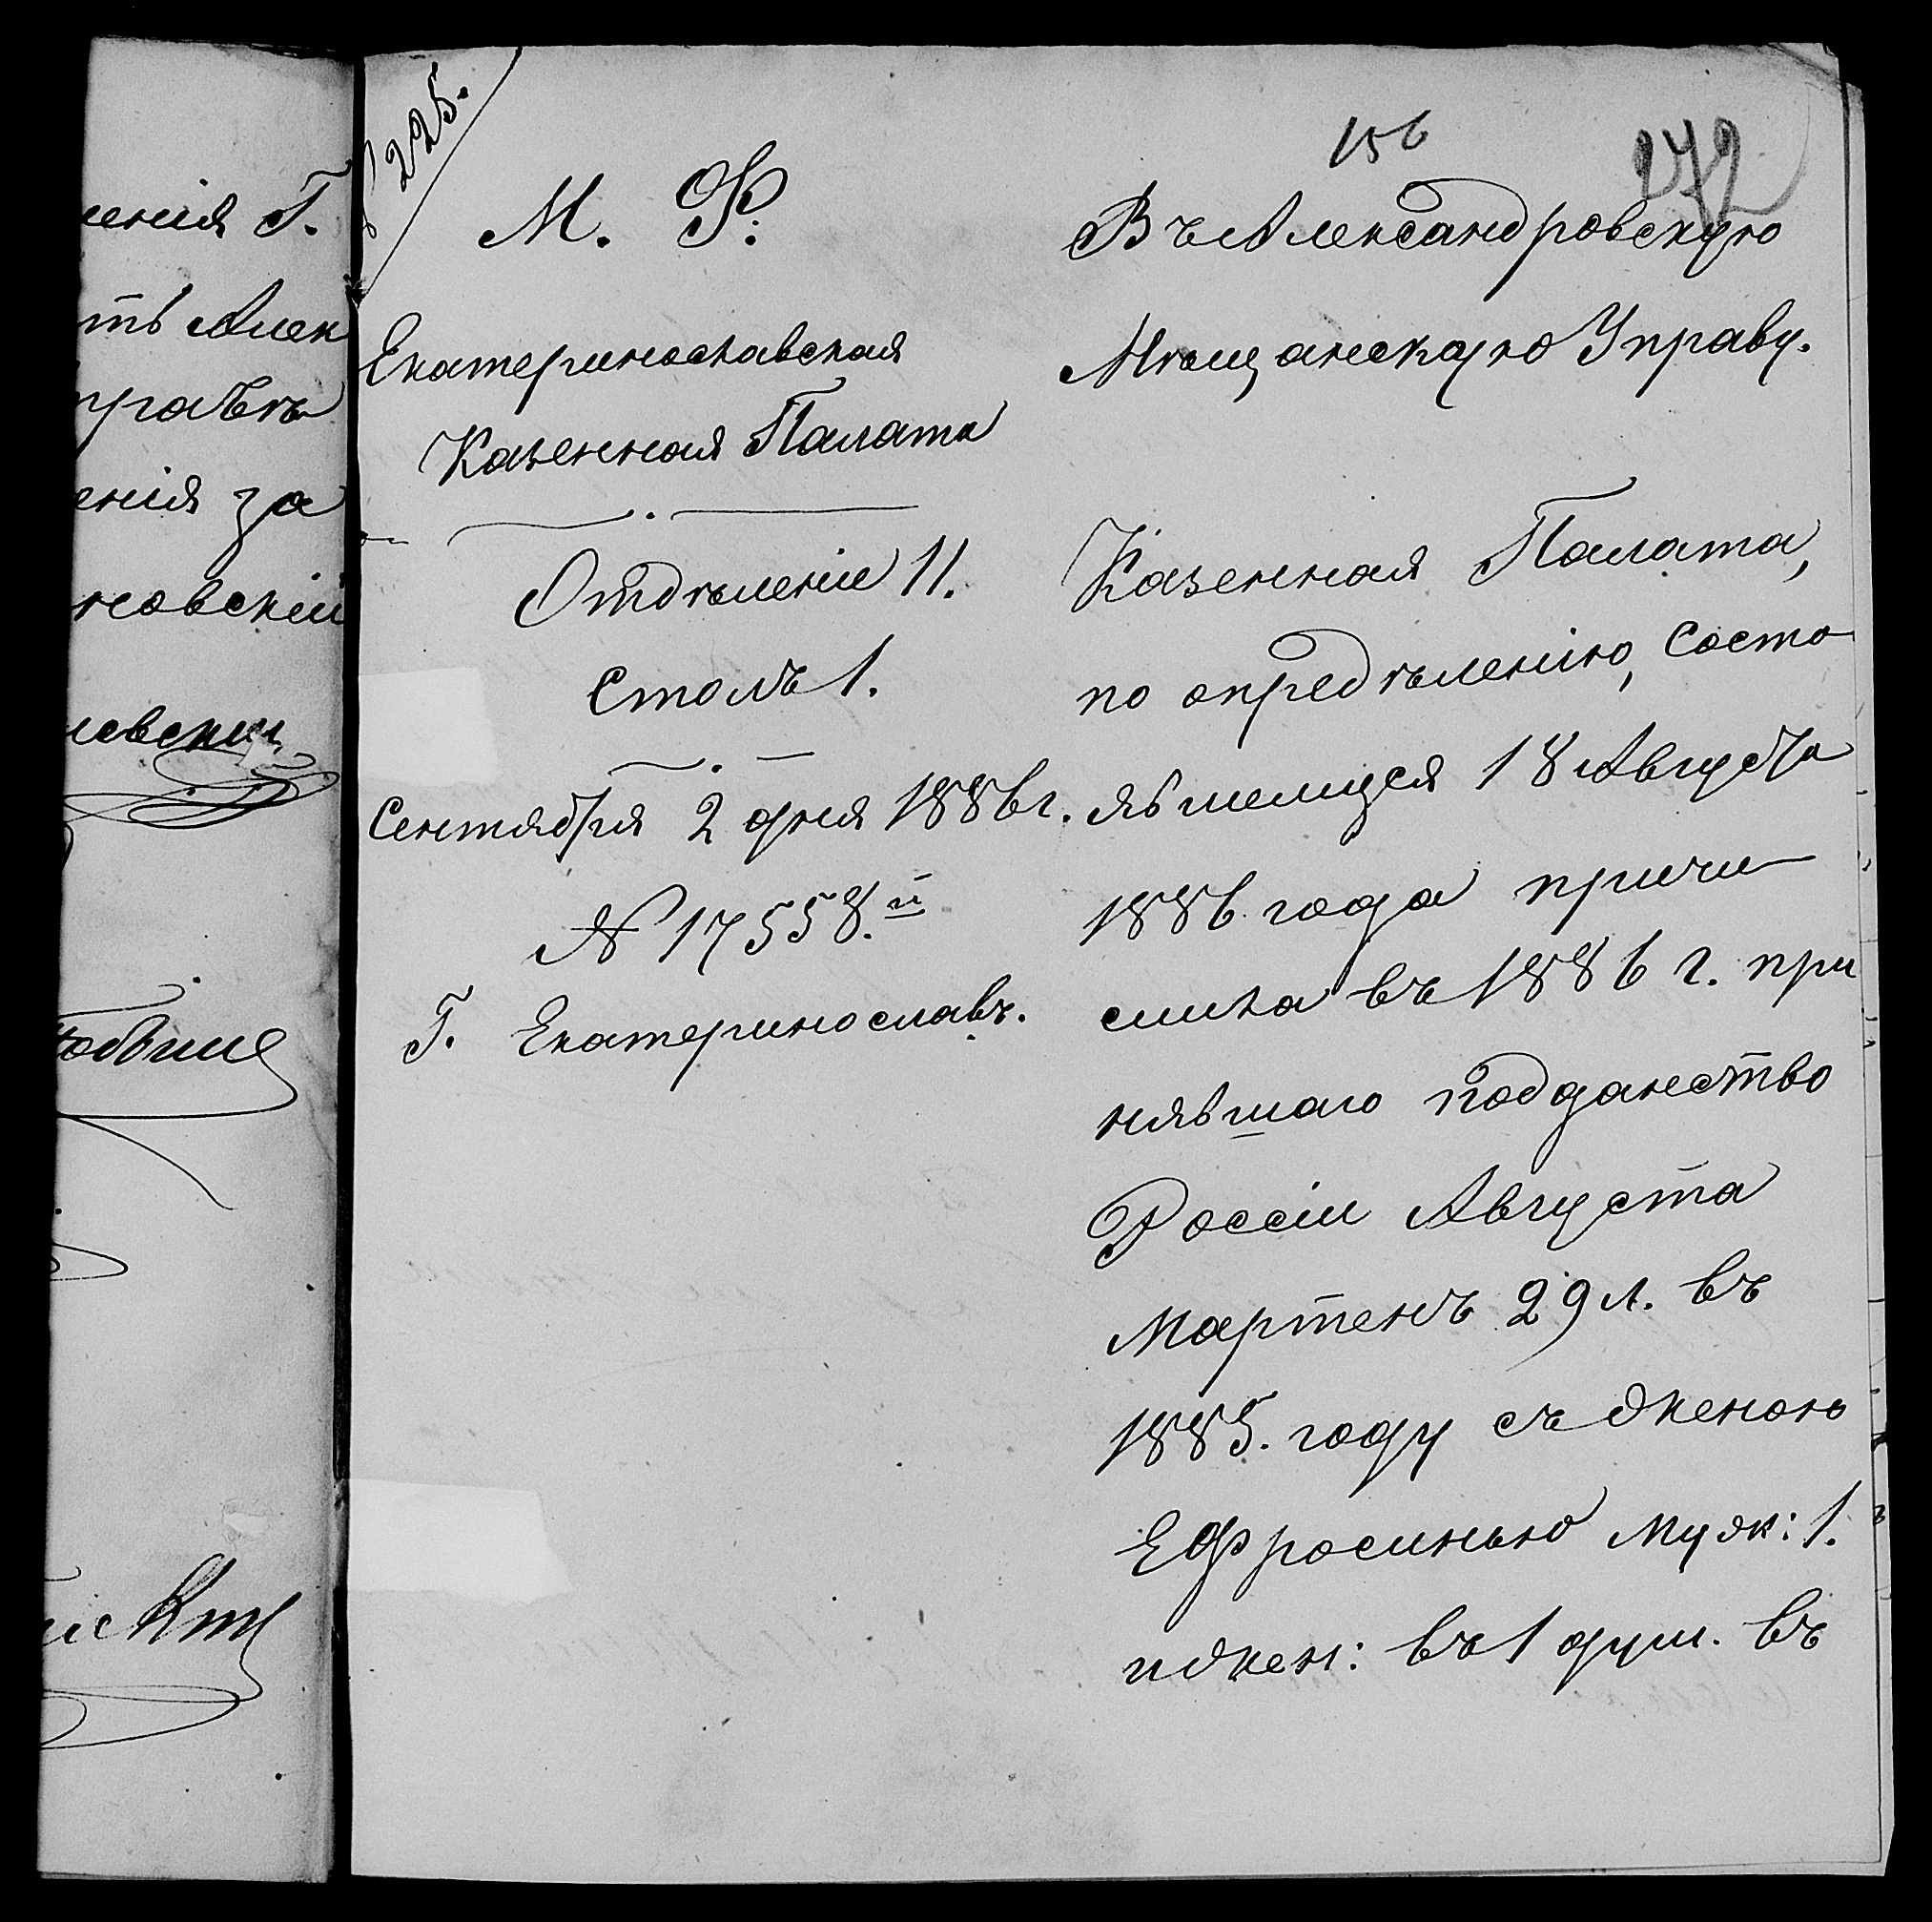 ленія Г.
ть Алек
правѣ
енія за
новскій
левски
225.
156
272
М. Ф.
Екатеринославская
Казенная Палата
Отдѣленіе II.
Столъ 1.
Сентября 2 дня 1886 г.
№ 17558.й
Г. Екатеринославъ.
Въ Александровскую
Мѣщанскую Управу.
Казенная Палата,
по опредѣленію, состо
явшемуся 18 Августа
1886 года причи
слила въ 1886 г. при
нявшаго подданство
Россіи Августа
Мартенъ 29 л. въ
1885. году съ женою
Ефросинью муж: 1.
и жен: въ 1 душ. въ